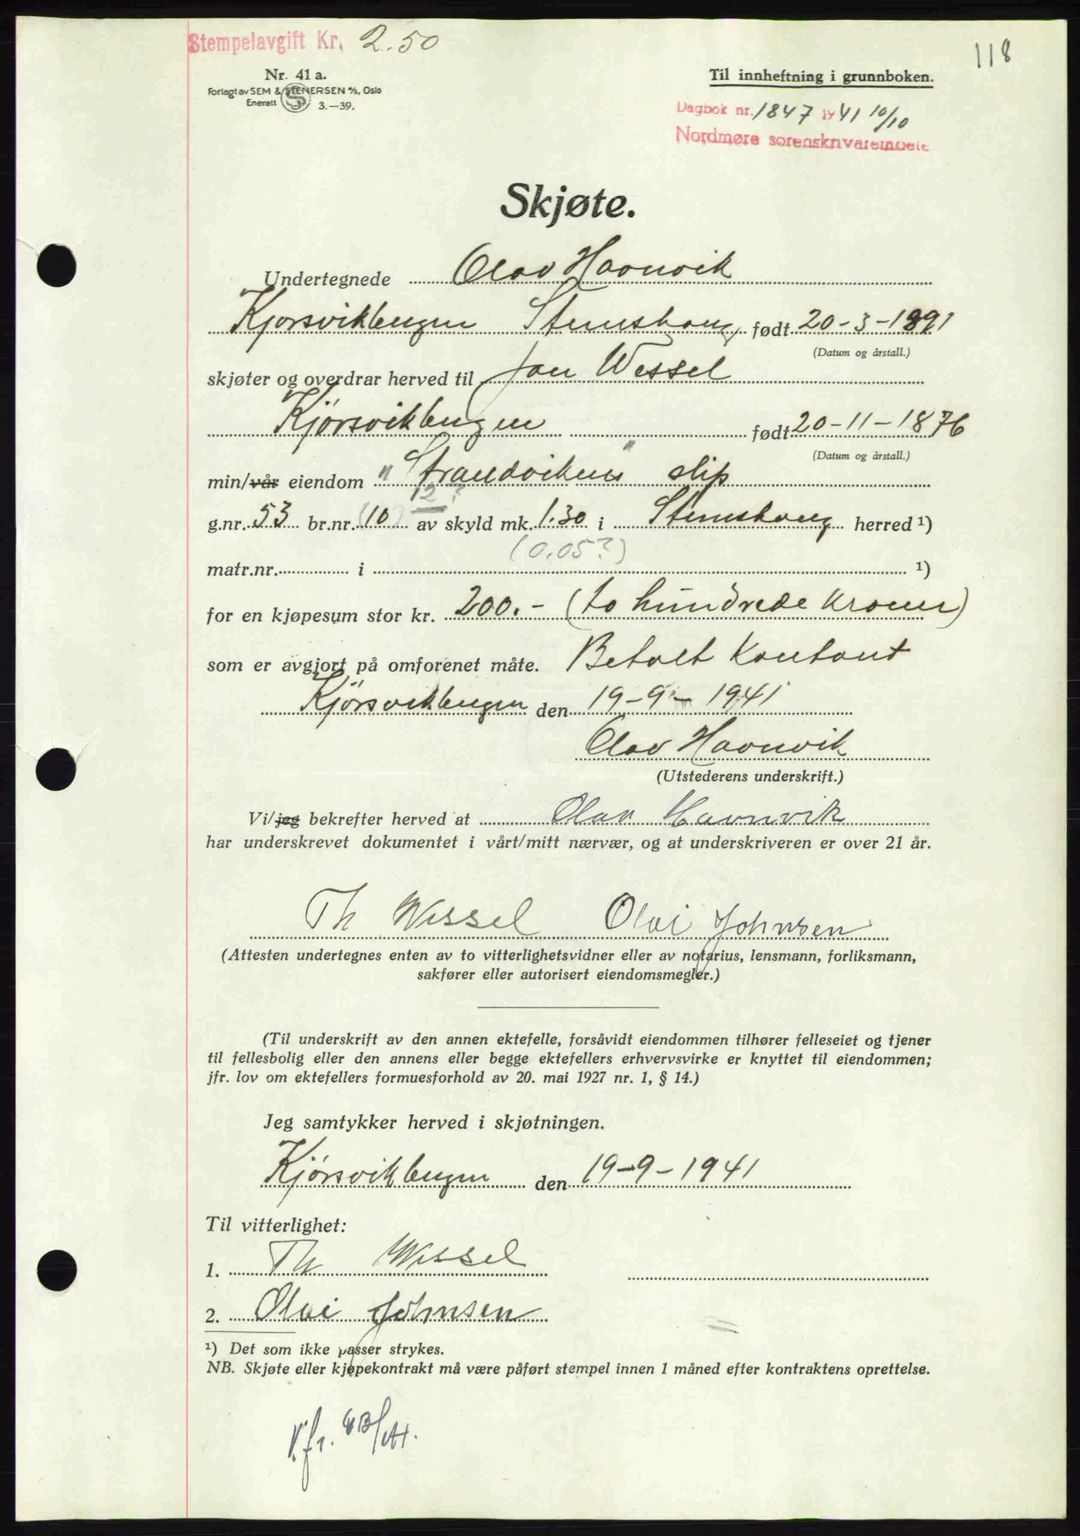 Stempelavgift Kr. 2.50
118
Nr. 41 a.
Forlagt av SEM & STENERSEN A/S, Oslo
Enerett S 3.–39.
Til innheftning i grunnboken.
Dagbok nr. 1847 1941 10/10
Nordmøre sorenskriverembete
Skjøte.
Undertegnede Olav Havnvik
Kjørsvikbugen Stemshaug født 20-3-1891
(Datum og årstall.)
skjøter og overdrar herved til Jon Wessel
Kjørsvikbugen født 20-11-1876
(Datum og årstall.)
min/vår eiendom "Strandvikens" slip
12?
g.nr. 53 br.nr. (10) av skyld mk. 1.30 i Stemshaug herred ¹)
(0.05?)
matr.nr. i ¹)
for en kjøpesum stor kr. 200.- (to hundrede kroner)
som er avgjort på omforenet måte. Betalt kontant
Kjørsvikbugen den 19-9-1941
Olav Havnvik
(Utstederens underskrift.)
Vi/jeg bekrefter herved at Olav Havnvik
har underskrevet dokumentet i vårt/mitt nærvær, og at underskriveren er over 21 år.
Th Wessel Olai Johnsen
(Attesten undertegnes enten av to vitterlighetsvidner eller av notarius, lensmann, forliksmann,
sakfører eller autorisert eiendomsmegler.)
(Til underskrift av den annen ektefelle, forsåvidt eiendommen tilhører felleseiet og tjener
til fellesbolig eller den annens eller begge ektefellers erhvervsvirke er knyttet til eiendommen;
jfr. lov om ektefellers formuesforhold av 20. mai 1927 nr. 1, § 14.)
Jeg samtykker herved i skjøtningen.
Kjørsvikbugen den 19-9-1941
Til vitterlighet:
1. Th Wessel
2. Olai Johnsen
¹) Det som ikke passer strykes.
NB. Skjøte eller kjøpekontrakt må være påført stempel innen 1 måned efter kontraktens oprettelse.